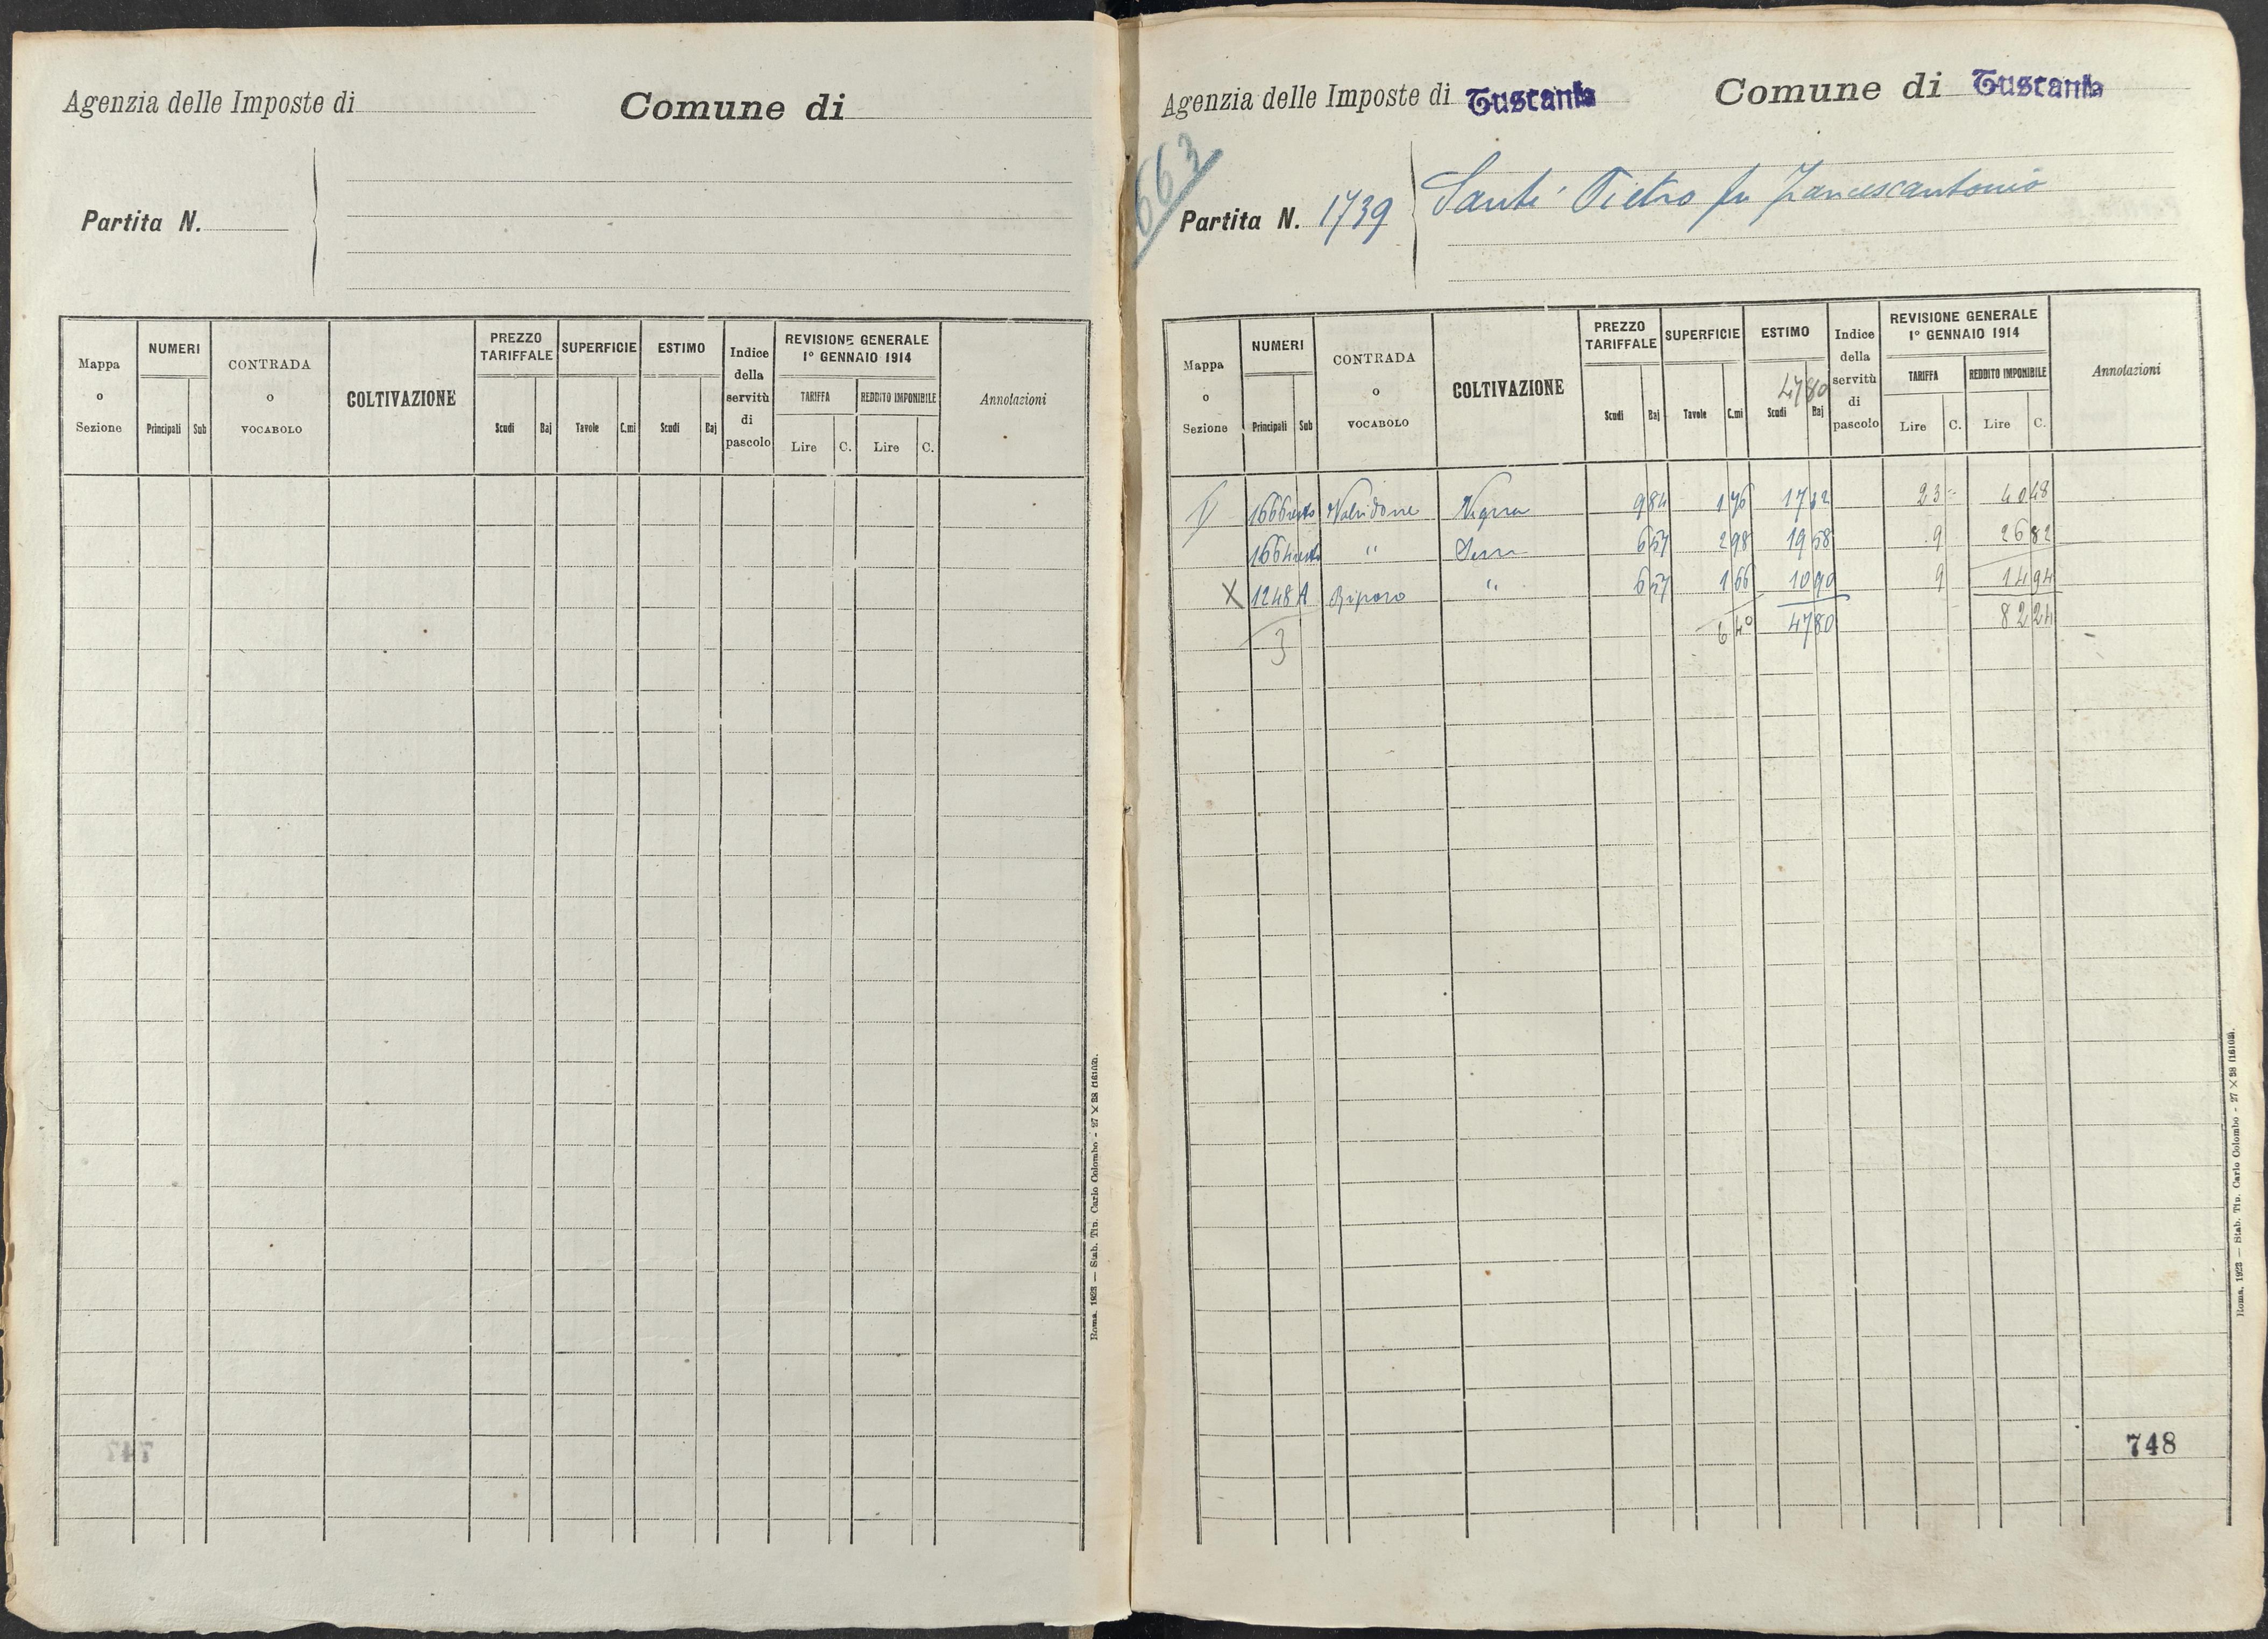 Agenzia delle Imposte di
Comune di
Partita N.
Mappa o Sezione
NUMERI
Principali Sub
CONTRADA o VOCABOLO
COLTIVAZIONE
PREZZO TARIFFALE
Scudi Baj
SUPERFICIE
Tavole C.mi
ESTIMO
Scudi Baj
Indice della servitù di pascolo
REVISIONE GENERALE
1° GENNAIO 1914
TARIFFA
Lire C.
REDDITO IMPONIBILE
Lire C.
Annotazioni
747
Roma, 1923 — Stab. Tip. Carlo Colombo - 27 × 38 (16103).
Agenzia delle Imposte di Tuscania
Comune di Tuscania
663
Partita N. 1739
Santi Pietro fu Francescantonio
Mappa o Sezione
NUMERI
Principali Sub
CONTRADA o VOCABOLO
COLTIVAZIONE
PREZZO TARIFFALE
Scudi Baj
SUPERFICIE
Tavole C.mi
ESTIMO
4780
Scudi Baj
Indice della servitù di pascolo
REVISIONE GENERALE
1° GENNAIO 1914
TARIFFA
Lire C.
REDDITO IMPONIBILE
Lire C.
Annotazioni
1666 resto Validone Vigna 9 84 1 76 17 32 23 - 40 48
1664 resto " 6 57 2 98 19 58 9 26 82
X 1248 A Riposo " 6 57 1 66 10 90 9 14 94
3 6 40 47 80 82 24
748
Roma, 1923 — Stab. Tip. Carlo Colombo - 27 × 38 (16103).